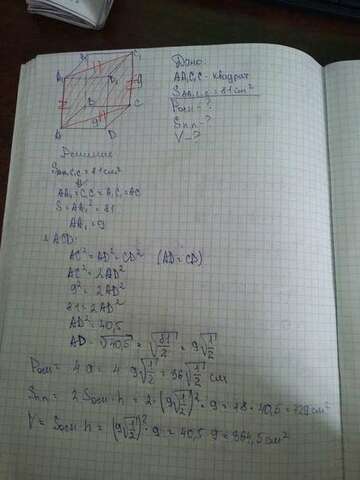 Дано:
AA₁C₁C - квадрат
S AA₁C₁C = 81 см²
Pосн = ?
Sп.п = ?
V - ?
A₁ B₁ C₁ D₁
A B C D
9
9
Решение
SAA₁C₁C = 81 см²
AA₁ = C₁C = A₁C₁ = AC
S = AA₁² = 81
AA₁ = 9
ACD:
AC² = AD² = CD² (AD = CD)
AC² = 2AD²
9² = 2AD²
81 = 2AD²
AD² = 40,5
AD = √40,5 = √81/2 = 9√1/2
Pосн = 4 · 9 = 4 · 9√1/2 = 36√1/2 см
Sп.п = 2 Sосн · h = 2 · (9√1/2)² · 9 = 18 · 40,5 = 729 см²
V = Sосн h = (9√1/2)² · 9 = 40,5 · 9 = 364,5 см²